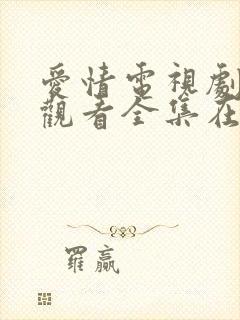 愛情電視劇
觀看全集在
羅贏